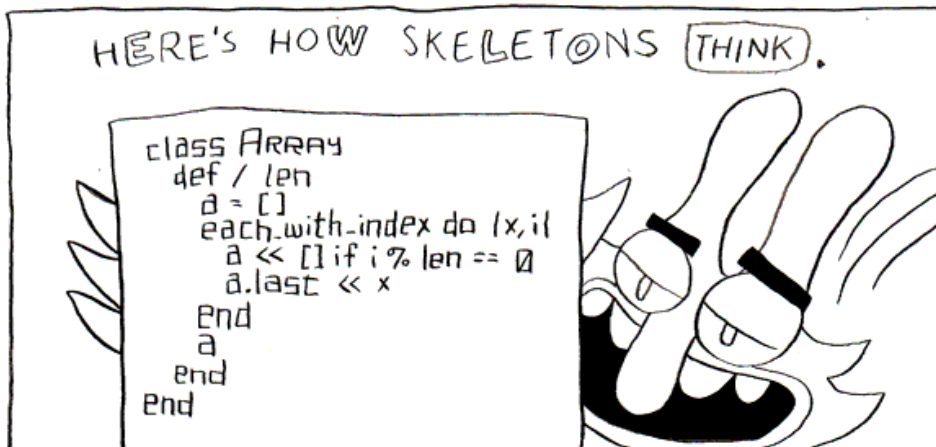 HERE'S HOW SKELETONS THINK.
class ARRAY
def / len
a = []
each_with_index do |x,i|
a << [] if i % len == 0
a.last << x
end
a
end
end